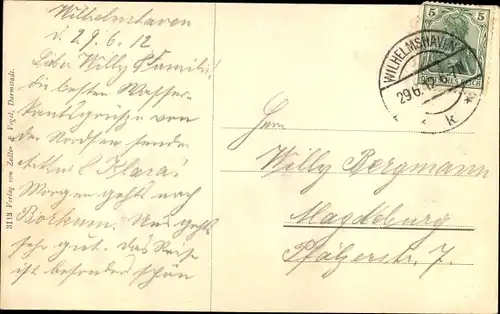 Wilhelmshaven
d. 29.6.12
Liebe Willy & Familie!
die besten Wasser-
kantsgrüsse von
der Nordsee sendet
Klara!
Morgen gehts nach
Borkum. Uns gehts
sehr gut. Das Reise
ist besonders schön
3113 Verlag von Zedler & Vogel, Darmstadt.
5 5
WILHELMSHAVEN
29.6.12.6
* k
Herrn
Willy Bergmann
Magdeburg
Pfälzerstr. 7.